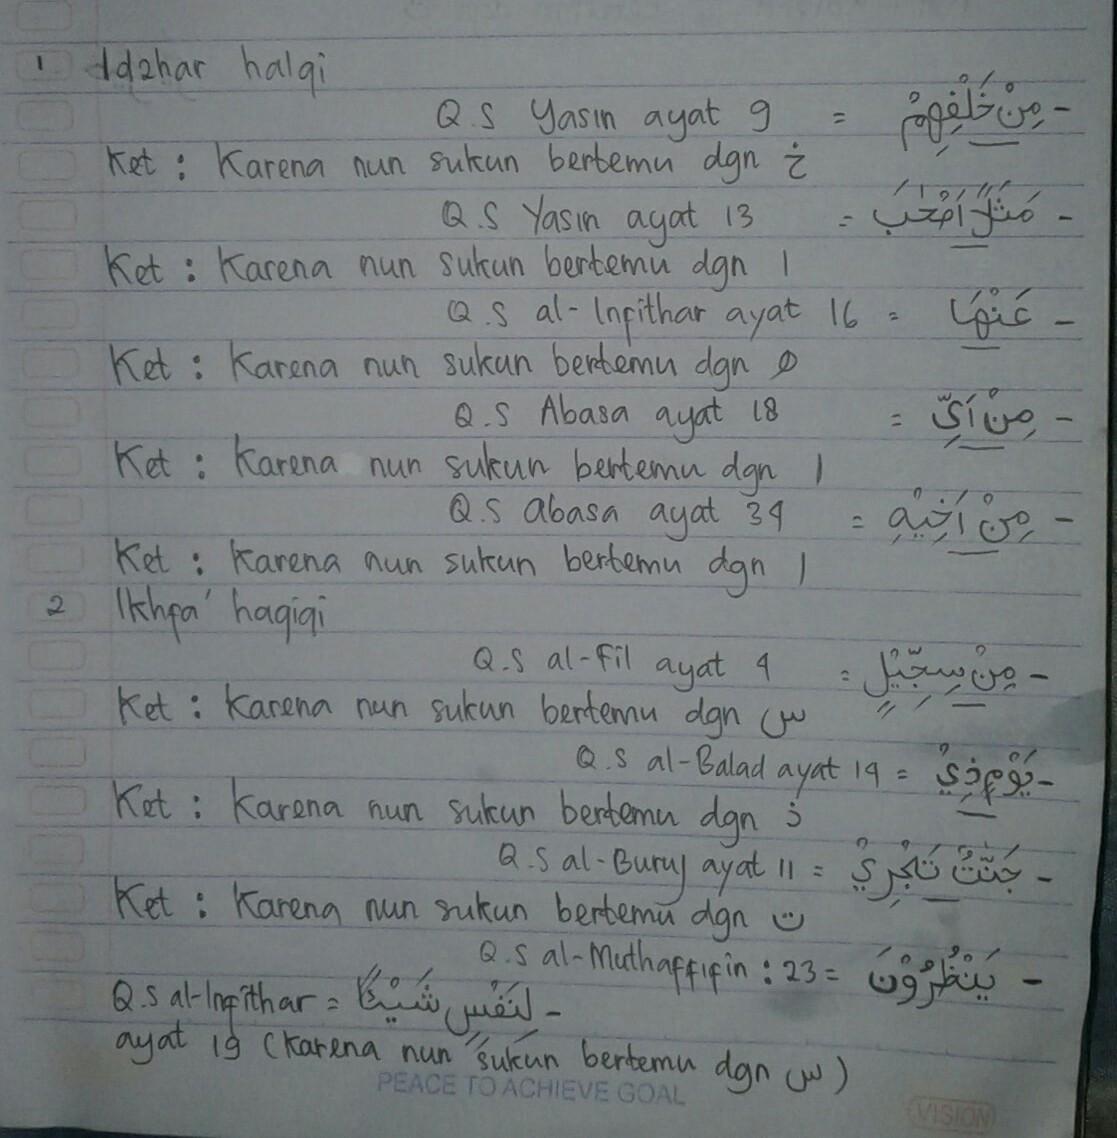 1 Idzhar halqi
Q.S Yasin ayat 9 = مِنْ خَلْفِهِمْ -
Ket : Karena nun sukun bertemu dgn خ
Q.S Yasin ayat 13 = مَثَلًا اَصْحٰبَ -
Ket : Karena nun sukun bertemu dgn ا
Q.S al-Infithar ayat 16 = عَنْهَا -
Ket : Karena nun sukun bertemu dgn ه
Q.S Abasa ayat 18 = مِنْ اَيِّ -
Ket : Karena nun sukun bertemu dgn ا
Q.S abasa ayat 34 = مِنْ اَخِيْهِ -
Ket : Karena nun sukun bertemu dgn ا
2 Ikhfa' haqiqi
Q.S al-Fil ayat 4 = مِنْ سِجِّيْلٍ -
Ket : Karena nun sukun bertemu dgn س
Q.S al-Balad ayat 14 = يَوْمٍ ذِيْ -
Ket : Karena nun sukun bertemu dgn ذ
Q.S al-Buruj ayat 11 = جَنّٰتٌ تَجْرِيْ -
Ket : Karena nun sukun bertemu dgn ت
Q.S al-Muthaffifin : 23 = يَنْظُرُوْنَ -
Q.S al-Infithar = لِنَفْسٍ شَيْـًٔا -
ayat 19 (Karena nun sukun bertemu dgn س)
PEACE TO ACHIEVE GOAL
VISION